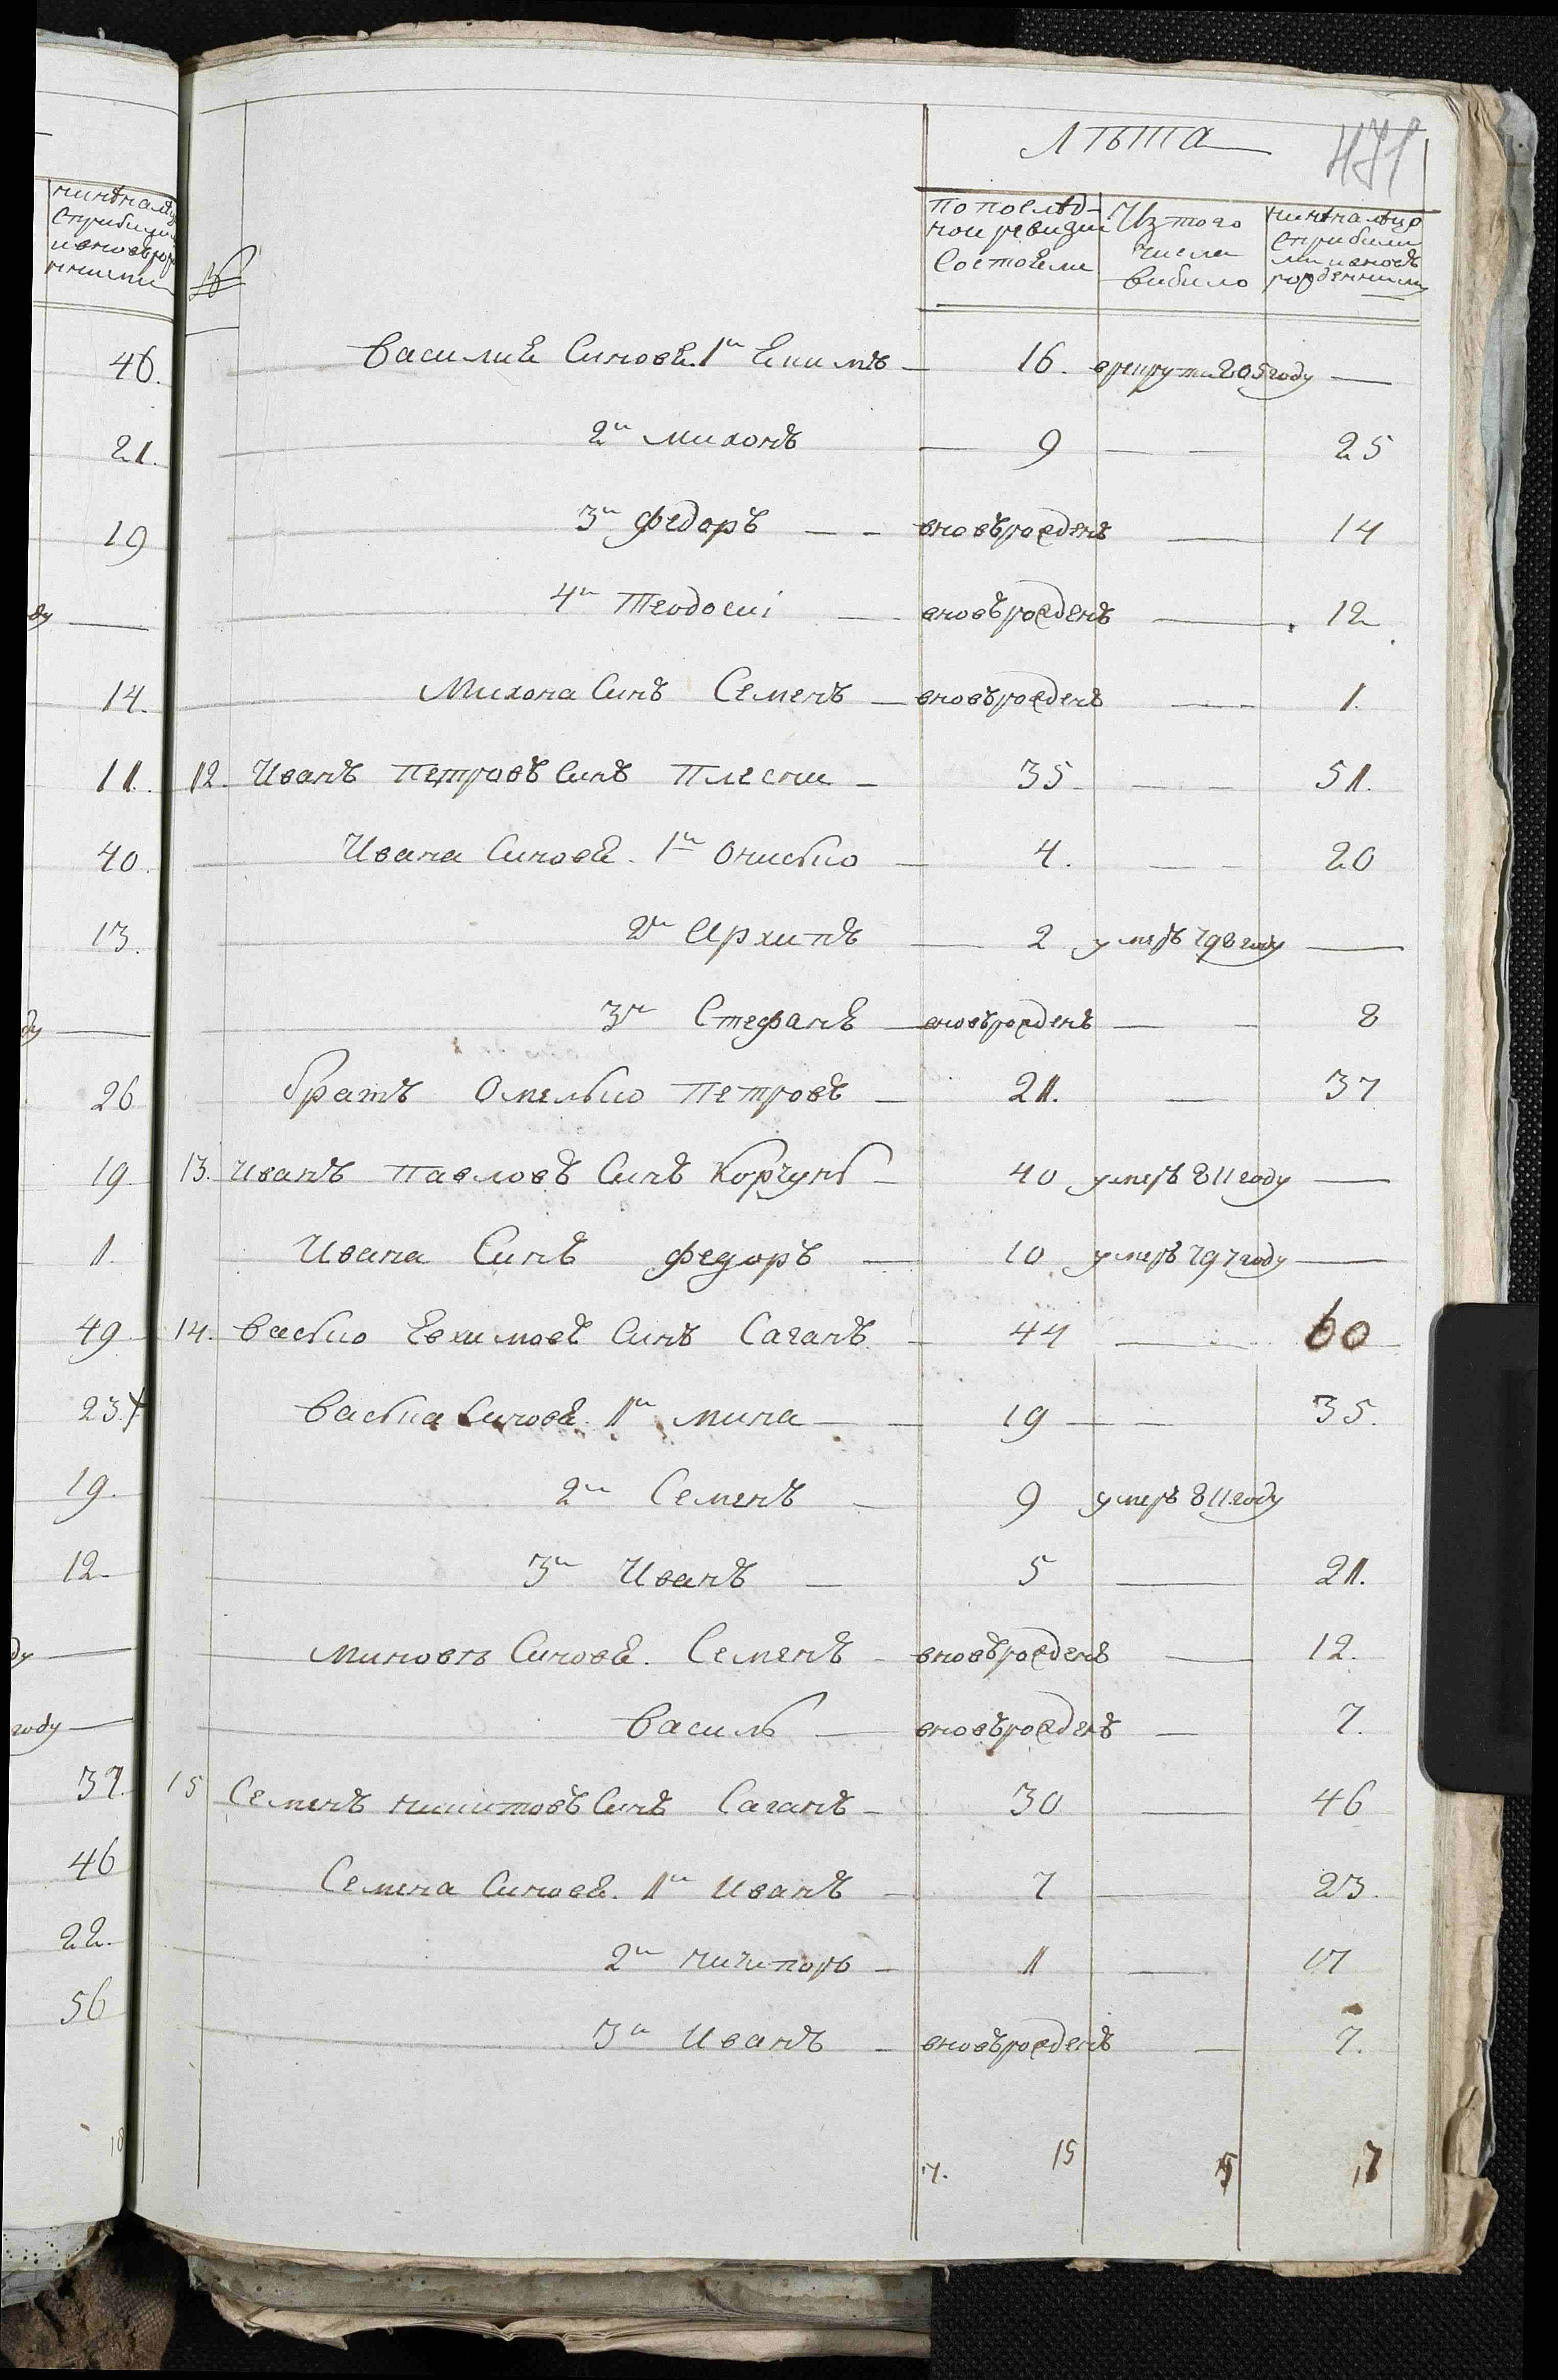 46.
21.
19
ду
14.
11.
40
13.
ду
26
19
1.
49
23.
19.
12.
ду
году
37.
46
22.
56
Лѣта
471
№
по послѣд-
ной ревизии
состояли
Из того
числа
вибило
ниннѣ на лицо
с прибили
ми и вновъ
рожденними
Василия Синовя. 1й Екимъ — 16. в рекрути 805 году —
2й Михонъ — 9 — — 25
3й Федоръ — — вновърожденъ — 14
4й Теодосиі — вновърожденъ — 12
Михона Синъ Семенъ — вновърожденъ — 1.
12. Иванъ Петровъ Синъ Плесни — 35 — — 51.
Ивана Синовя. 1й Онисько — 4. — — 20
2й Архипъ — 2 умеръ 798 году —
3й Стефанъ — вновърожденъ — — 8
братъ Омелько Петровъ — 21. — 37
13. Иванъ Павловъ Синъ Корчунъ — 40 умеръ 811 году —
Ивана Синъ Федоръ — 10 умеръ 797 году —
14. Васько Евхимовъ Синъ Саганъ — 44 — 60
Васька Синовя. 1й Мина — — 19 — — 35.
2й Семенъ — 9 умеръ 811 году
3й Иванъ — 5 — 21.
Миновы Синовя. Семенъ — вновърожденъ — 12.
Василь — вновърожденъ — 7.
15 Семенъ Никитовъ Синъ Саганъ — 30 — 46
Семена Синовя. 1й Иванъ — 7 — 23.
2й Ничипоръ — 1 — 17
3й Иванъ — вновърожденъ — 7.
15 5 17